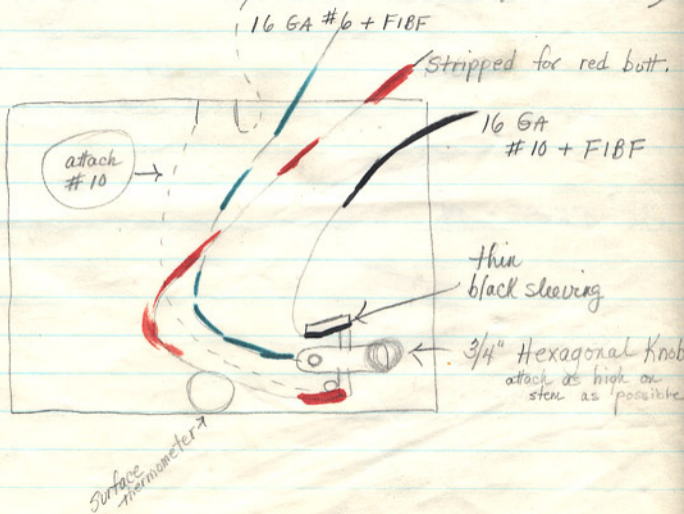 16 GA #6 + FIBF
Stripped for red butt.
16 GA
#10 + FIBF
attach
#10
thin
black sleeving
3/4" Hexagonal Knob
attach as high on
stem as possible
Surface
thermometer